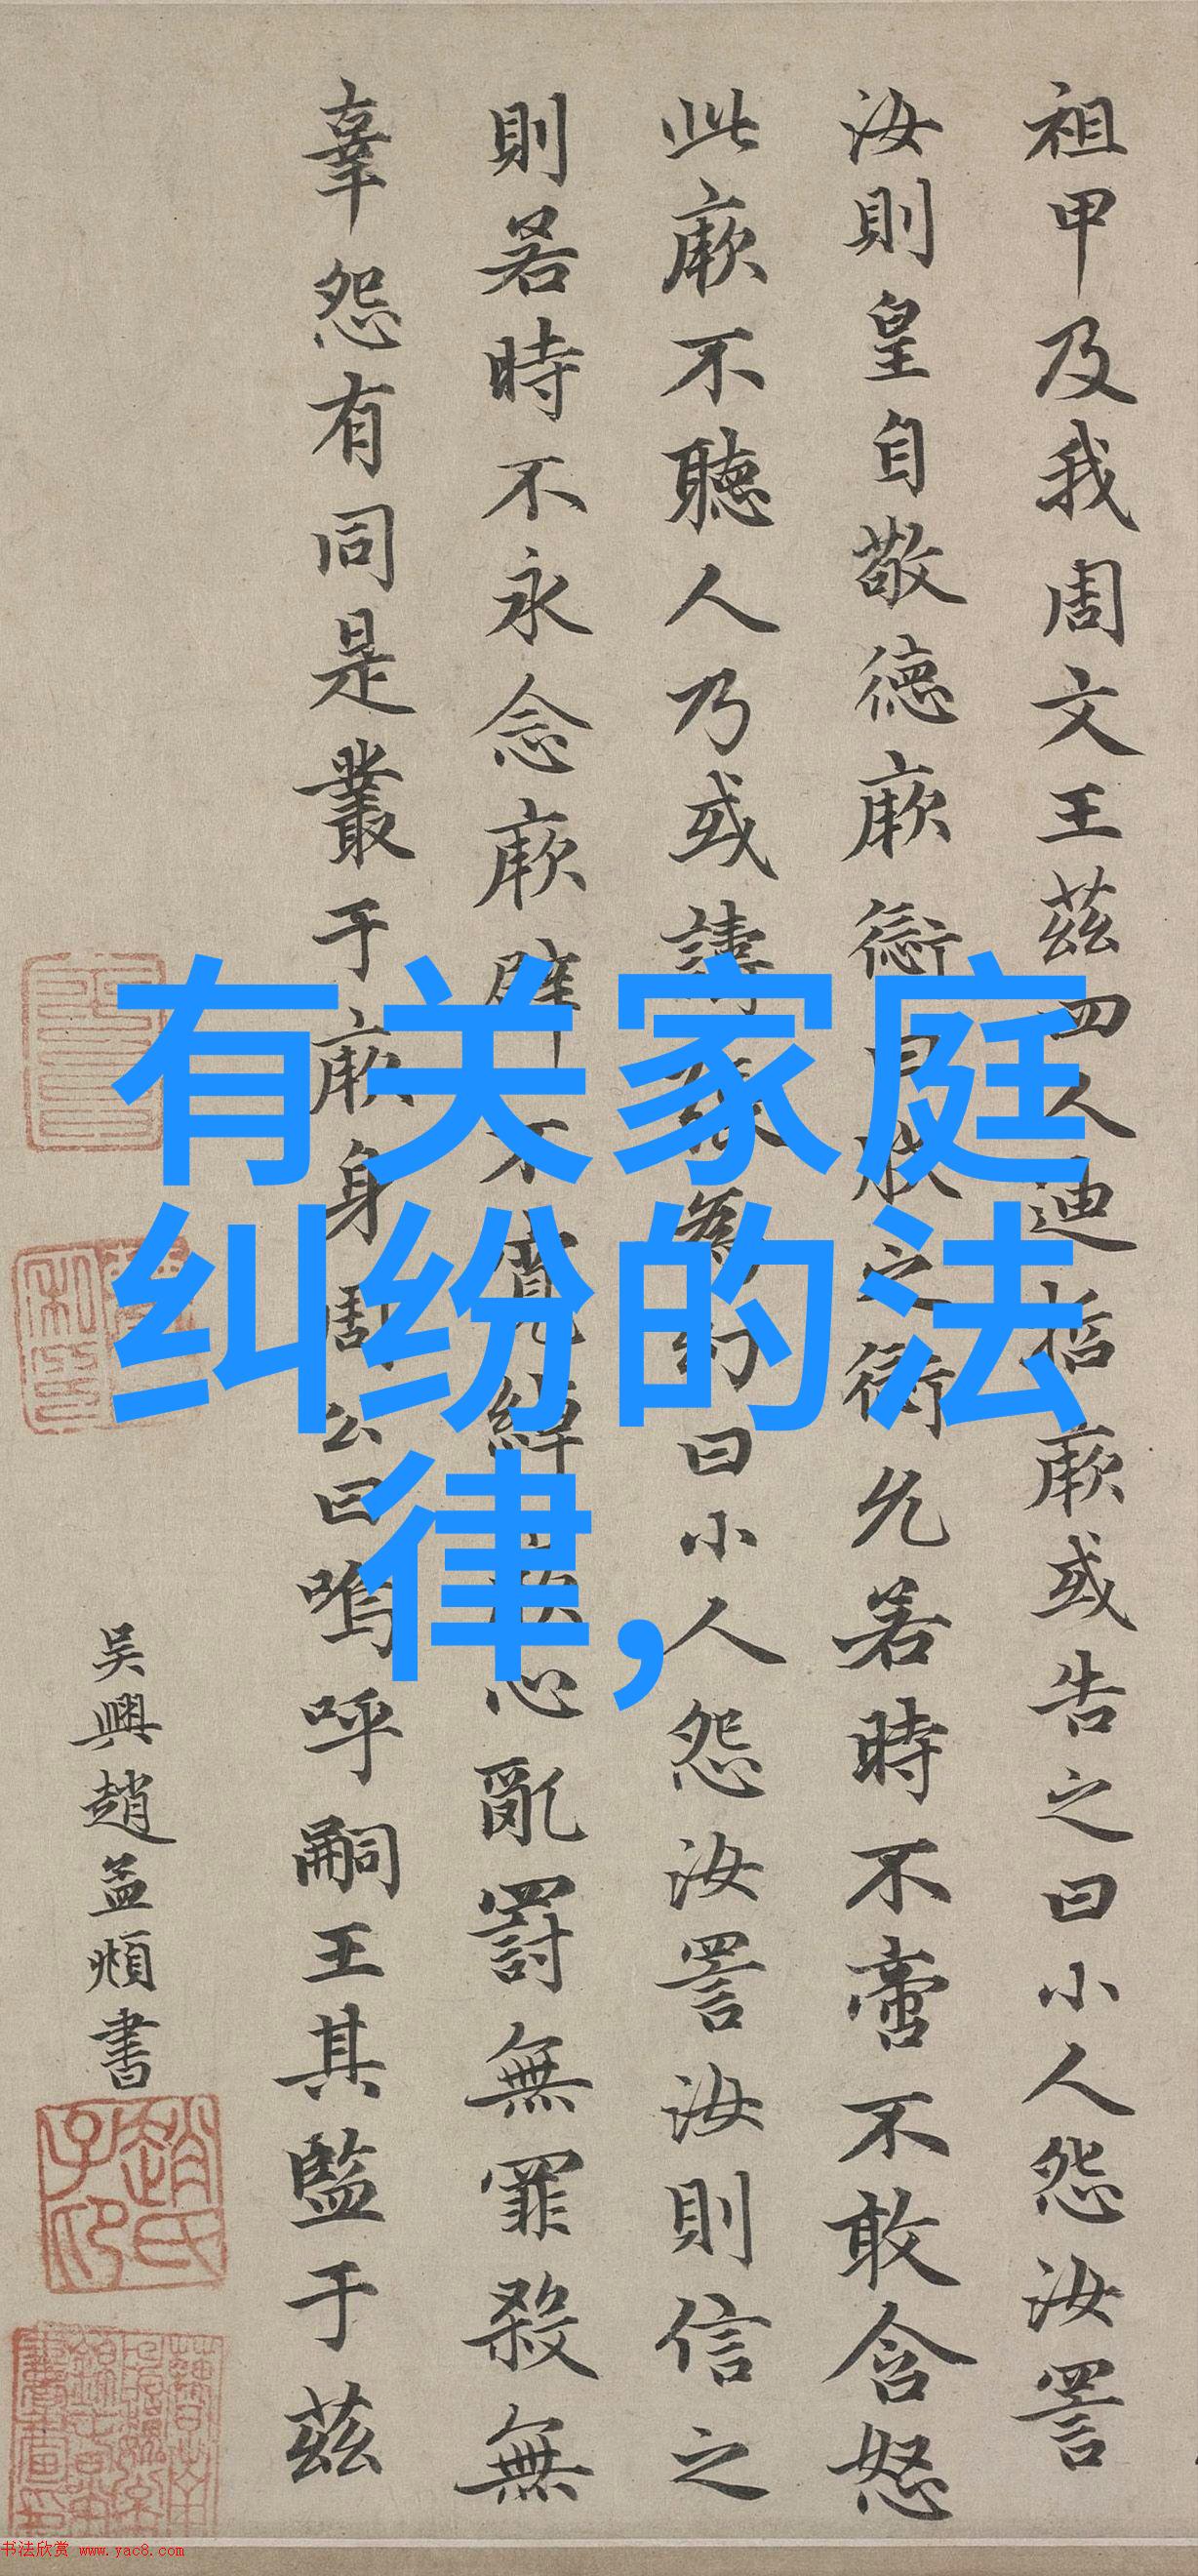 祖甲及我周文王茲四人迪哲厥或告之曰小人怨汝詈
汝則皇自敬德厥愆曰朕之愆允若時不啻不敢含怒
此厥不聽人乃或譸張為幻曰小人怨汝詈汝則信之
則若時不永念厥辟不寬綽厥心亂罰無罪殺無
辜怨有同是叢于厥身周公曰嗚呼嗣王其監于茲
吳興趙孟頫書
趙氏子昂
有关家庭
纠纷的法
律,
书法欣赏 www.yac8.com